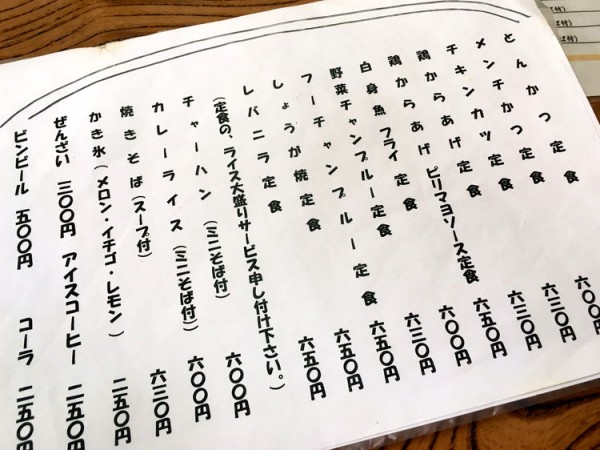 とんかつ定食
メンチかつ定食 六〇〇
チキンカツ定食 六三〇円
鶏からあげ定食 六三〇円
鶏からあげピリマヨソース定食 六五〇円
白身魚フライ定食 六〇〇円
野菜チャンプルー定食 六三〇円
フーチャンプルー定食 六五〇円
しょうが焼定食 六五〇円
レバニラ定食 六五〇円
(定食の、ライス大盛りサービス申し付け下さい。)
チャーハン(ミニそば付) 六〇〇円
カレーライス(ミニそば付) 六〇〇円
焼きそば(スープ付) 六三〇円
かき氷(メロン・イチゴ・レモン) 二五〇円
ぜんざい 三〇〇円 アイスコーヒー 二五〇円
ビンビール 五〇〇円 コーラ 二五〇円